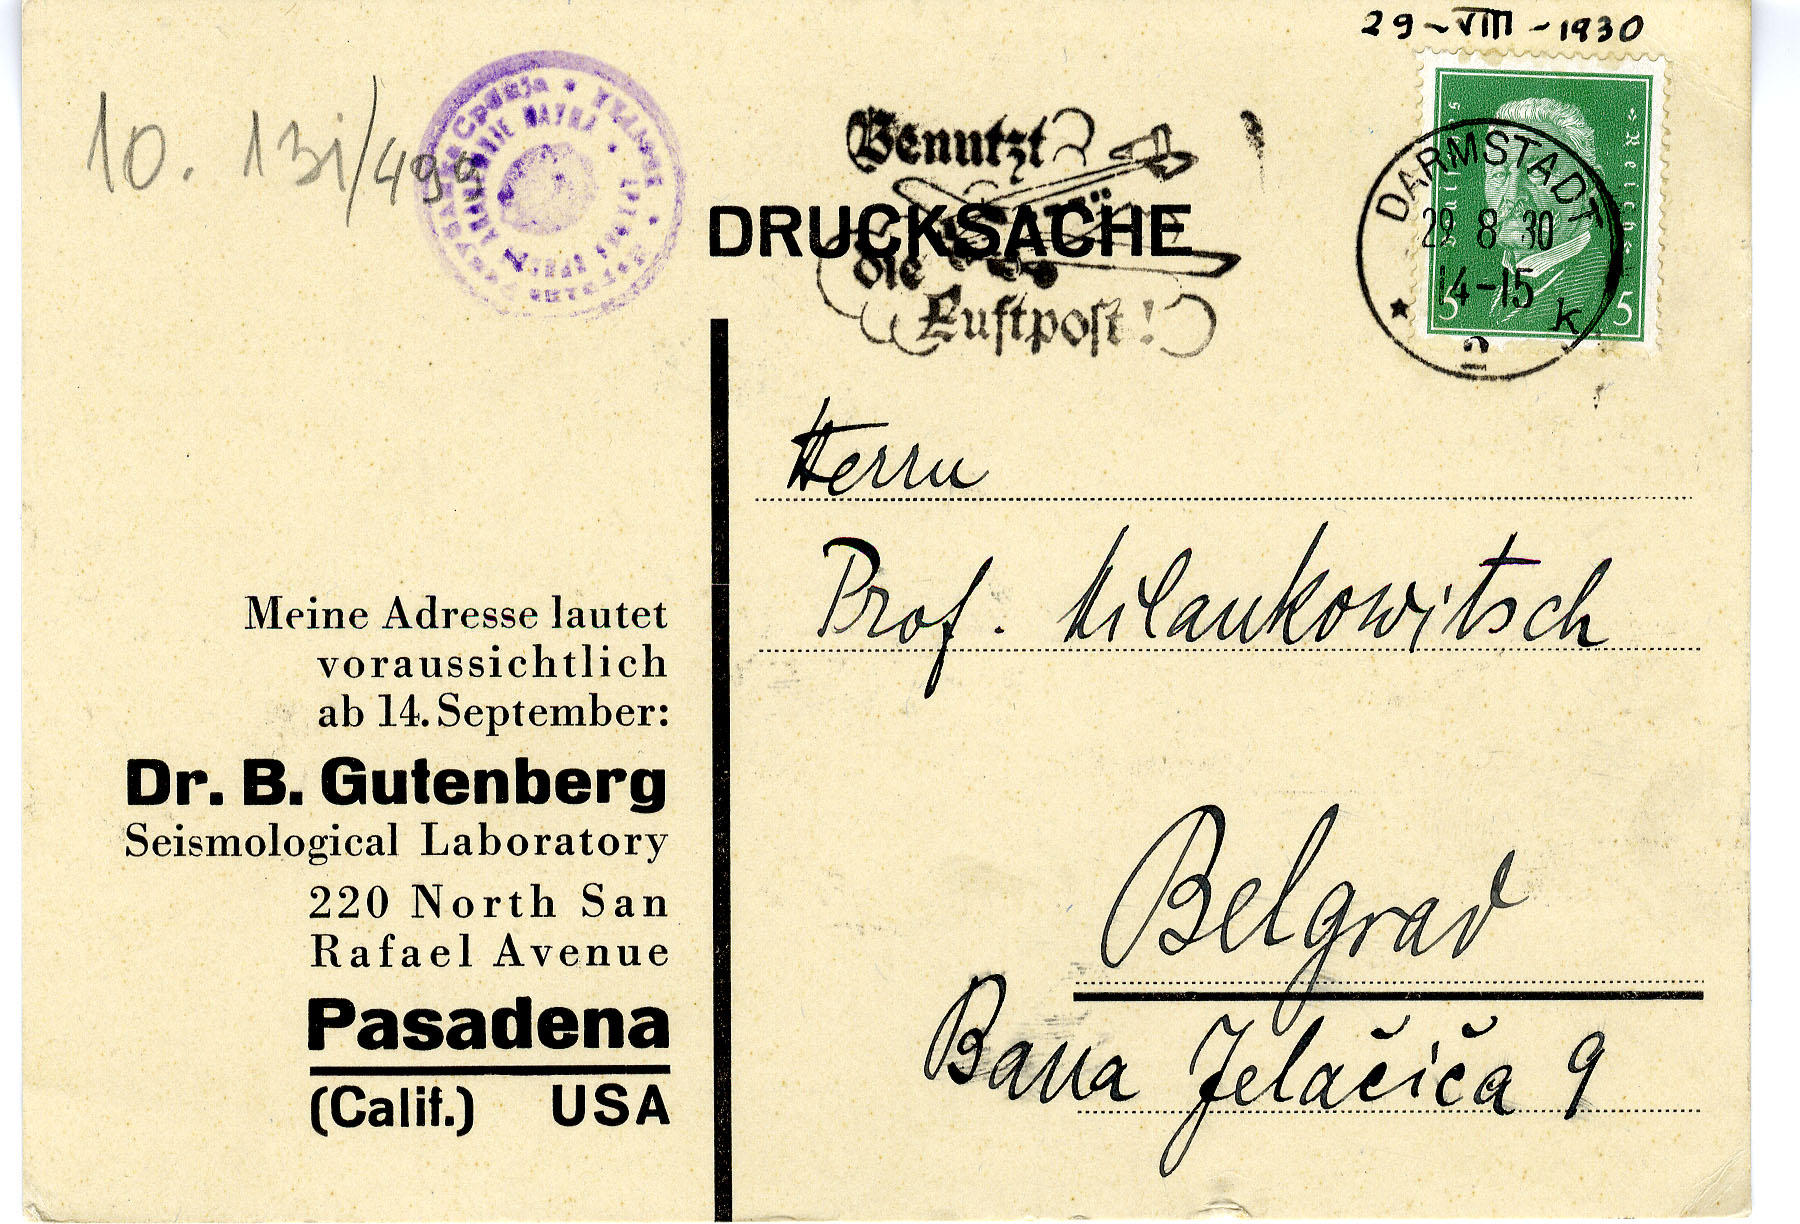 29-VIII-1930
10. 13i/490
Benutzt
DRUCKSACHE
die
Luftpost!
DARMSTADT
29 8 30
14-15
k
5 5
Herrn
Prof. Milankowitsch
Belgrad
Bana Jelačiča 9
Meine Adresse lautet
voraussichtlich
ab 14. September:
Dr. B. Gutenberg
Seismological Laboratory
220 North San
Rafael Avenue
Pasadena
(Calif.) USA